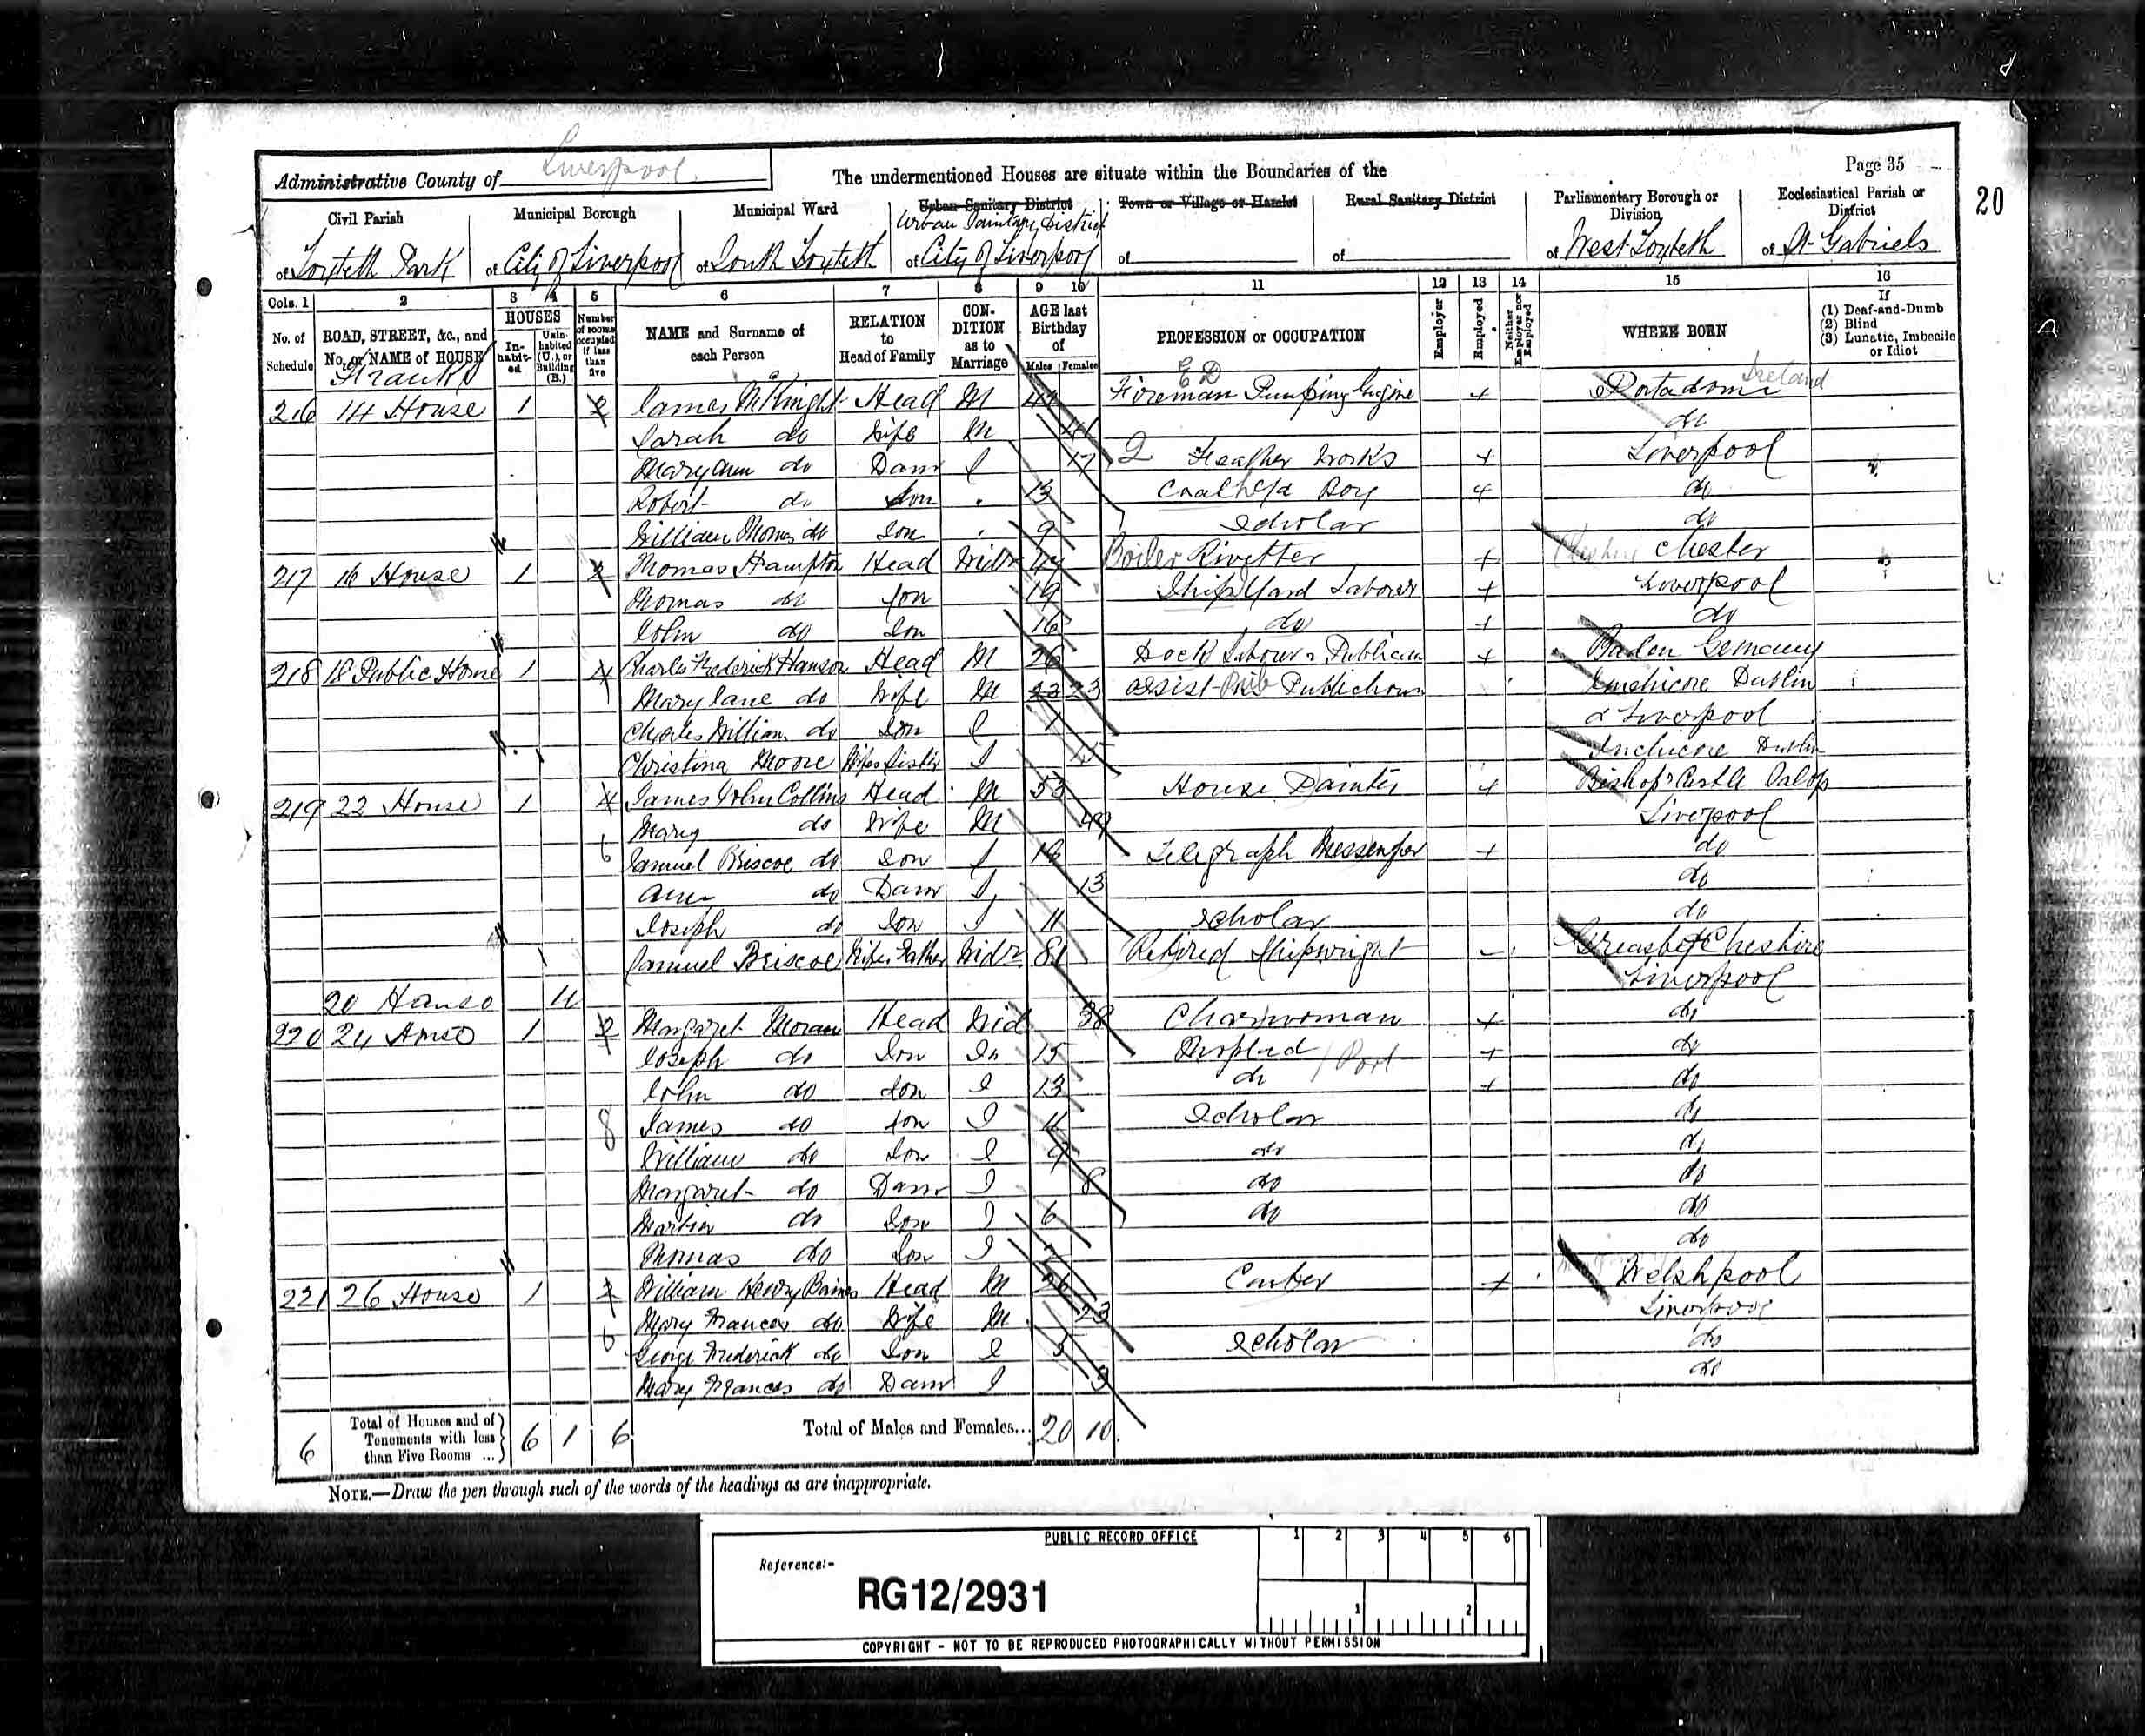 Administrative County of Liverpool
The undermentioned Houses are situate within the Boundaries of the
Page 35
20
Civil Parish
Municipal Borough
Municipal Ward
Urban Sanitary District
Town or Village or Hamlet
Rural Sanitary District
Parliamentary Borough or Division
Ecclesiastical Parish or District
of Toxteth Park
of City of Liverpool
of South Toxteth
Urban Sanitary District
of City of Liverpool
of
of
of West Toxteth
of St Gabriels
Cols. 1 2 3 4 5 6 7 8 9 10 11 12 13 14 15 16
No. of Schedule
ROAD, STREET, &c., and No. or NAME of HOUSE
HOUSES
In-habit-ed
Unin-habited (U.), or Building (B.)
Number of rooms occupied if less than five
NAME and Surname of each Person
RELATION to Head of Family
CON-DITION as to Marriage
AGE last Birthday of
Males Females
PROFESSION or OCCUPATION
Employer
Employed
Neither Employer nor Employed
WHERE BORN
If
(1) Deaf-and-Dumb
(2) Blind
(3) Lunatic, Imbecile or Idiot
216 14 House 1 2 James McKnight Head M Fireman Pumping Engine + Ireland
Sarah do Wife M 41 do
Mary Ann do Daur S 17 Feather Works + Liverpool
Robert do Son 13 Boy + do
William Thomas do Son 9 Scholar do
217 16 House 1 Thomas Hampton Head Widr 44 Boiler Rivetter + Chester
Thomas do Son 19 Ship Yard Laborer + Liverpool
John do Son 16 do + do
218 18 Public House 1 4 Charles Frederick Hanson Head M 26 Dock Labour & Publican + Baden Germany
Mary Jane do Wife M 23 23 assist Publichouse Inchicore Dublin
Charles William do Son S 1 Liverpool
Christina Moore Wifes Sister S 15 Inchicore Dublin
219 22 House 1 4 James John Collins Head M 53 House Painter + Bishops Castle Salop
Mary do Wife M 49 Liverpool
6 Samuel Briscoe do Son S Telegraph Messenger + do
Ann do Daur S 13 do
Joseph do Son S 11 Scholar do
Samuel Briscoe Wifes Father Widr 81 Retired Shipwright Cheshire
Liverpool
20 House U
220 24 House 1 2 Margaret Moran Head Wid 38 Charwoman + do
Joseph do Son 15 + do
John do Son S 13 do + do
8 James do Son S 11 Scholar do
William do Son S 9 do do
Margaret do Daur S 8 do do
Martin do Son S 6 do do
Thomas do Son S do
221 26 House 1 William Henry Head M 26 Carter + Welshpool
Mary Frances do Wife M 23 Liverpool
6 George Frederick do Son S 5 Scholar do
Mary Frances do Daur S 3 do
6 Total of Houses and of Tenements with less than Five Rooms ... 6 1 6
Total of Males and Females... 20 10
NOTE.—Draw the pen through such of the words of the headings as are inappropriate.
PUBLIC RECORD OFFICE
1 2 3 4 5 6
Reference:-
RG12/2931
1 2
COPYRIGHT - NOT TO BE REPRODUCED PHOTOGRAPHICALLY WITHOUT PERMISSION